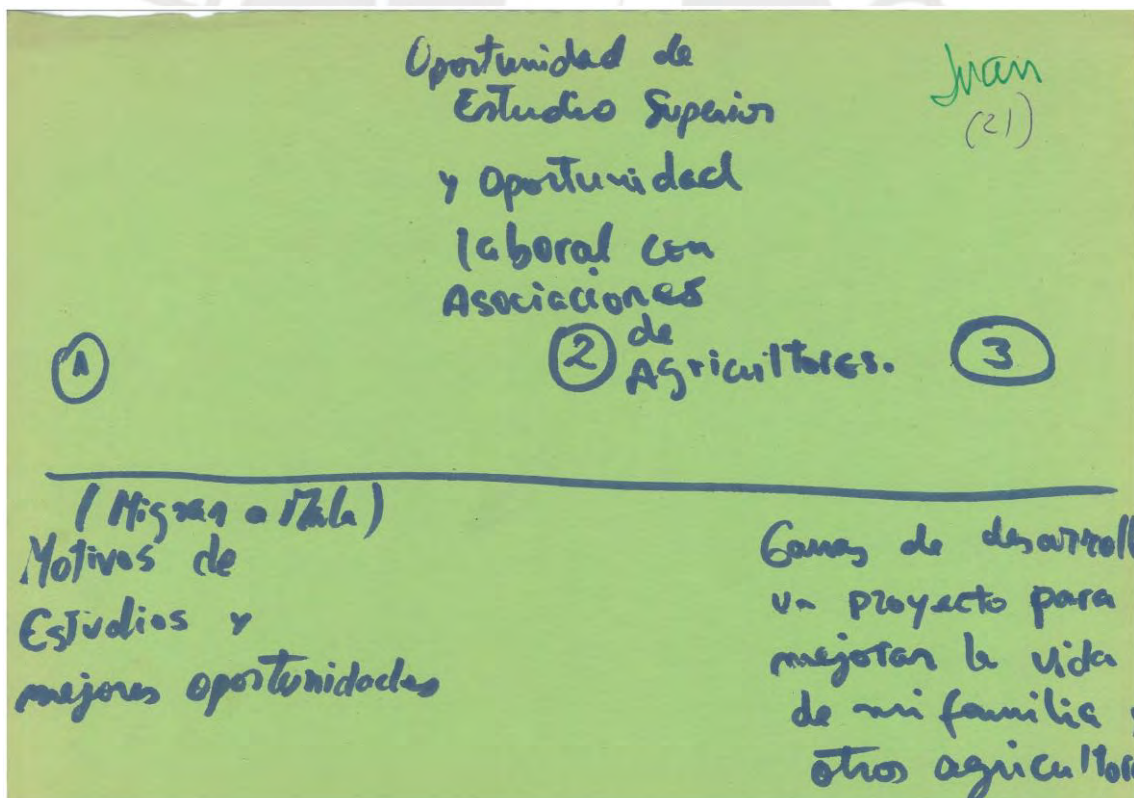 Oportunidad de
Estudio Superior
y Oportunidad
laboral con
Asociaciones
de
Agricultores.
Juan
(21)
1
2
3
(Migran a Mala)
Motivos de
Estudios y
mejores oportunidades
Ganas de desarroll
un proyecto para
mejorar la vida
de mi familia y
otros agricultor